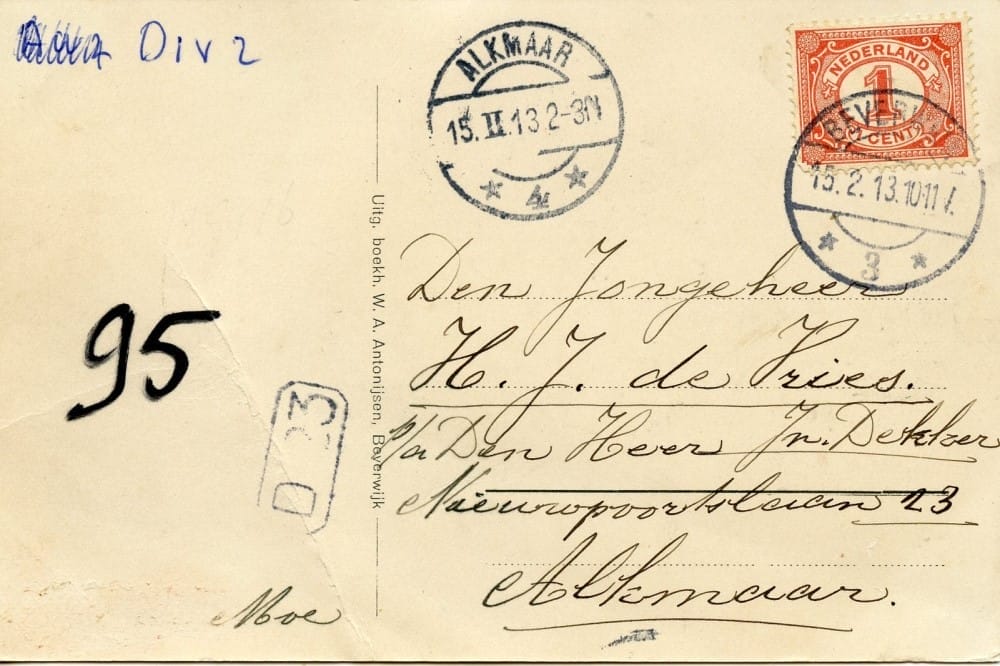 Div 2
ALKMAAR
15.II.13 2-3N
4
NEDERLAND
1
CENT
BEVERW
15.2.13.10-11V.
3
Uitg. boekh. W. A. Antonijsen, Beverwijk
Den Jongeheer
H. J. de Vries.
p/a Den Heer Jn. Dekker
Nieuwpoortslaan 23
Alkmaar.
95
D 23
Moe